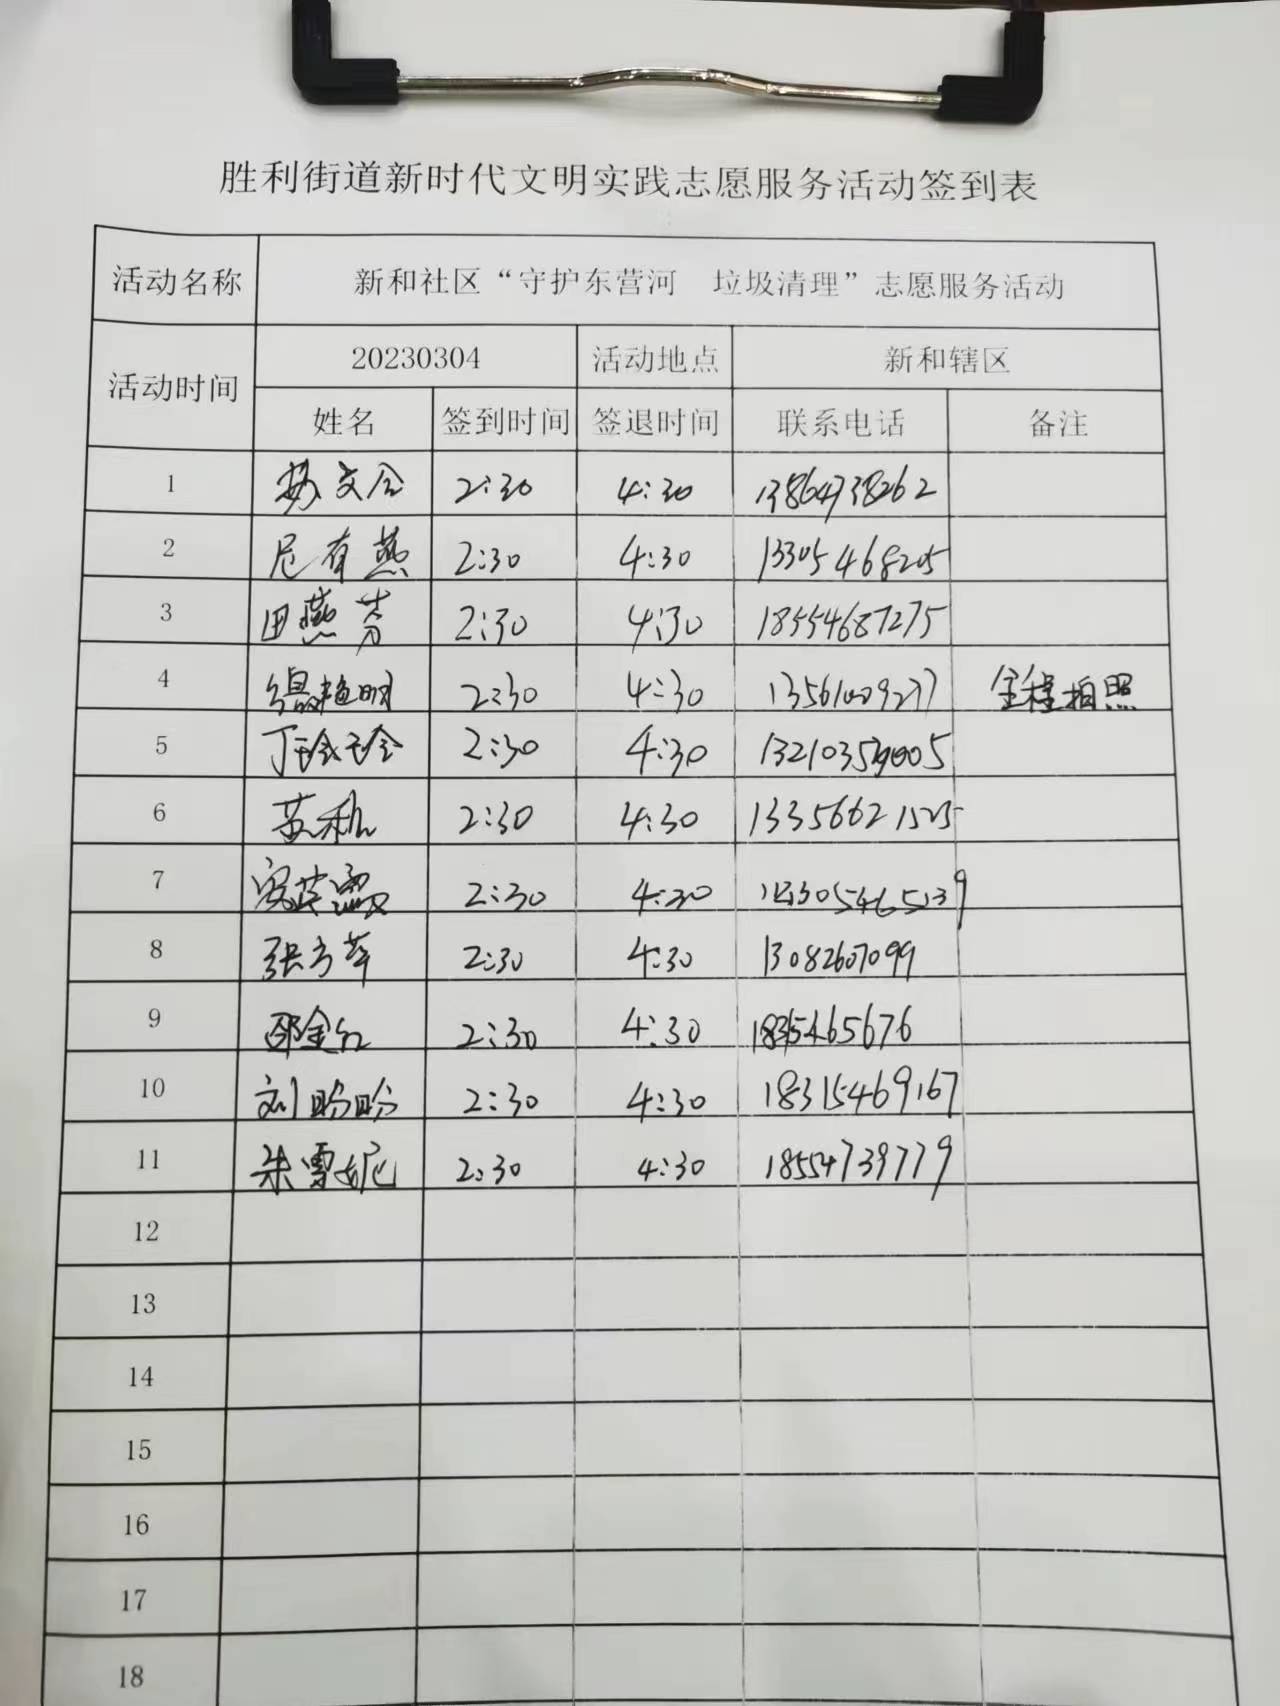 胜利街道新时代文明实践志愿服务活动签到表
活动名称 新和社区“守护东营河 垃圾清理”志愿服务活动
活动时间 20230304 活动地点 新和辖区
姓名 签到时间 签退时间 联系电话 备注
1 2:30 4:30 13864738262
2 尼有燕 2:30 4:30 13305468205
3 田燕芳 2:30 4:30 18554687275
4 2:30 4:30 13561009277 全程拍照
5 丁玲玲 2:30 4:30
6 苏秋红 2:30 4:30 13356621525
7 2:30 4:30
8 张方苹 2:30 4:30 13082607099
9 邵金红 2:30 4:30
10 刘盼盼 2:30 4:30 18315469167
11 朱雪妮 2:30 4:30 18554739779
12
13
14
15
16
17
18